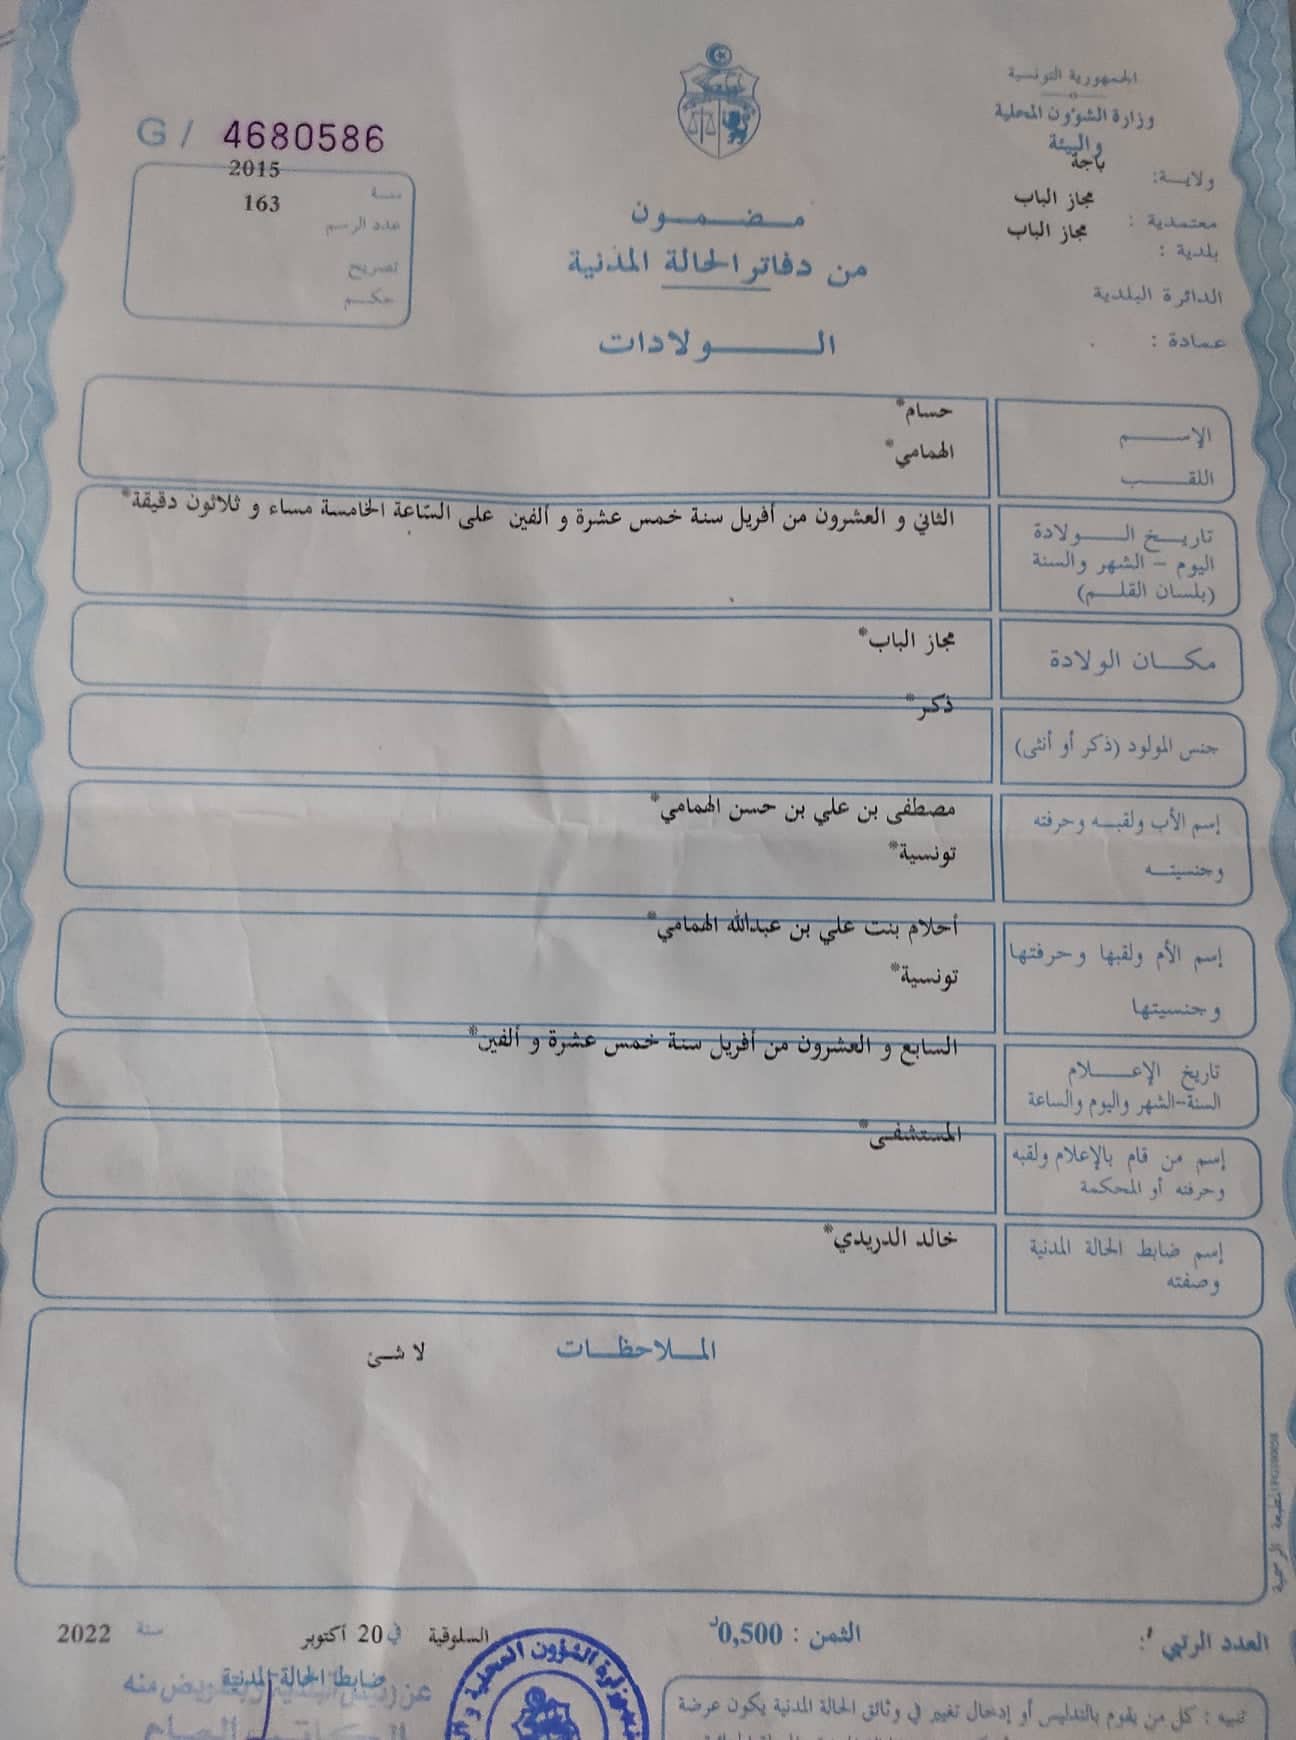 الجمهورية التونسية
وزارة الشؤون المحلية
والبيئة
ولايـــة: باجة
معتمدية : مجاز الباب
بلدية : مجاز الباب
الدائرة البلدية
عمادة :
G / 4680586
سنـة 2015
عدد الرسم 163
تصريح
حكـــم
مـــضـــمـــون
من دفاتر الحالة المدنية
الـــــولادات
الإســـــم حسام*
اللقـــب الهمامي*
تاريــخ الـــــولادة
اليوم – الشهر والسنة
(بلسان القلـــم)
الثاني و العشرون من أفريل سنة خمس عشرة و ألفين على السّاعة الخامسة مساء و ثلاثون دقيقة*
مكـــان الولادة مجاز الباب*
جنس المولود (ذكر أو أنثى) ذكر*
إسم الأب ولقبـــه وحرفته مصطفى بن علي بن حسن الهمامي*
وجنسيتـــه تونسية*
إسم الأم ولقبها وحرفتها أحلام بنت علي بن عبدالله الهمامي*
وجنسيتها تونسية*
تاريخ الإعـــــلام
السنة-الشهر واليوم والساعة
السابع و العشرون من أفريل سنة خمس عشرة و ألفين*
إسم من قام بالإعلام ولقبه
وحرفته أو المحكمة
المستشفى*
إسم ضابط الحالة المدنية
وصفته
خالد الدريدي*
المـــلاحظـــات لا شئ
العدد الرتبي :
الثمن : 0,500د
السلوقية في 20 أكتوبر سنة 2022
ضابط الحالة المدنية
تنبيه : كل من يقوم بالتدليس أو إدخال تغيير في وثائق الحالة المدنية يكون عرضة